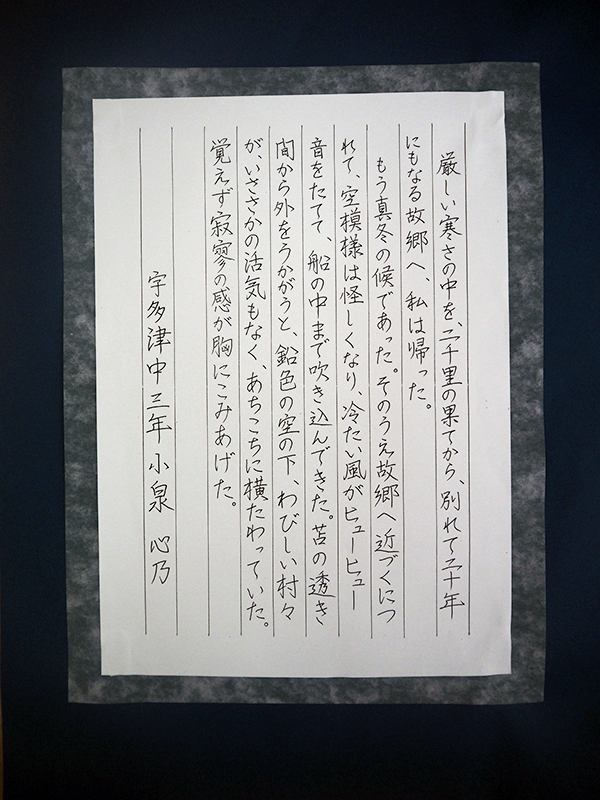 厳しい寒さの中を、二千里の果てから、別れて二十年
にもなる故郷へ、私は帰った。
もう真冬の候であった。そのうえ故郷へ近づくにつ
れて、空模様は怪しくなり、冷たい風がヒューヒュー
音をたてて、船の中まで吹き込んできた。苫の透き
間から外をうかがうと、鉛色の空の下、わびしい村々
が、いささかの活気もなく、あちこちに横たわっていた。
覚えず寂寥の感が胸にこみあげた。
宇多津中三年 小泉 心乃